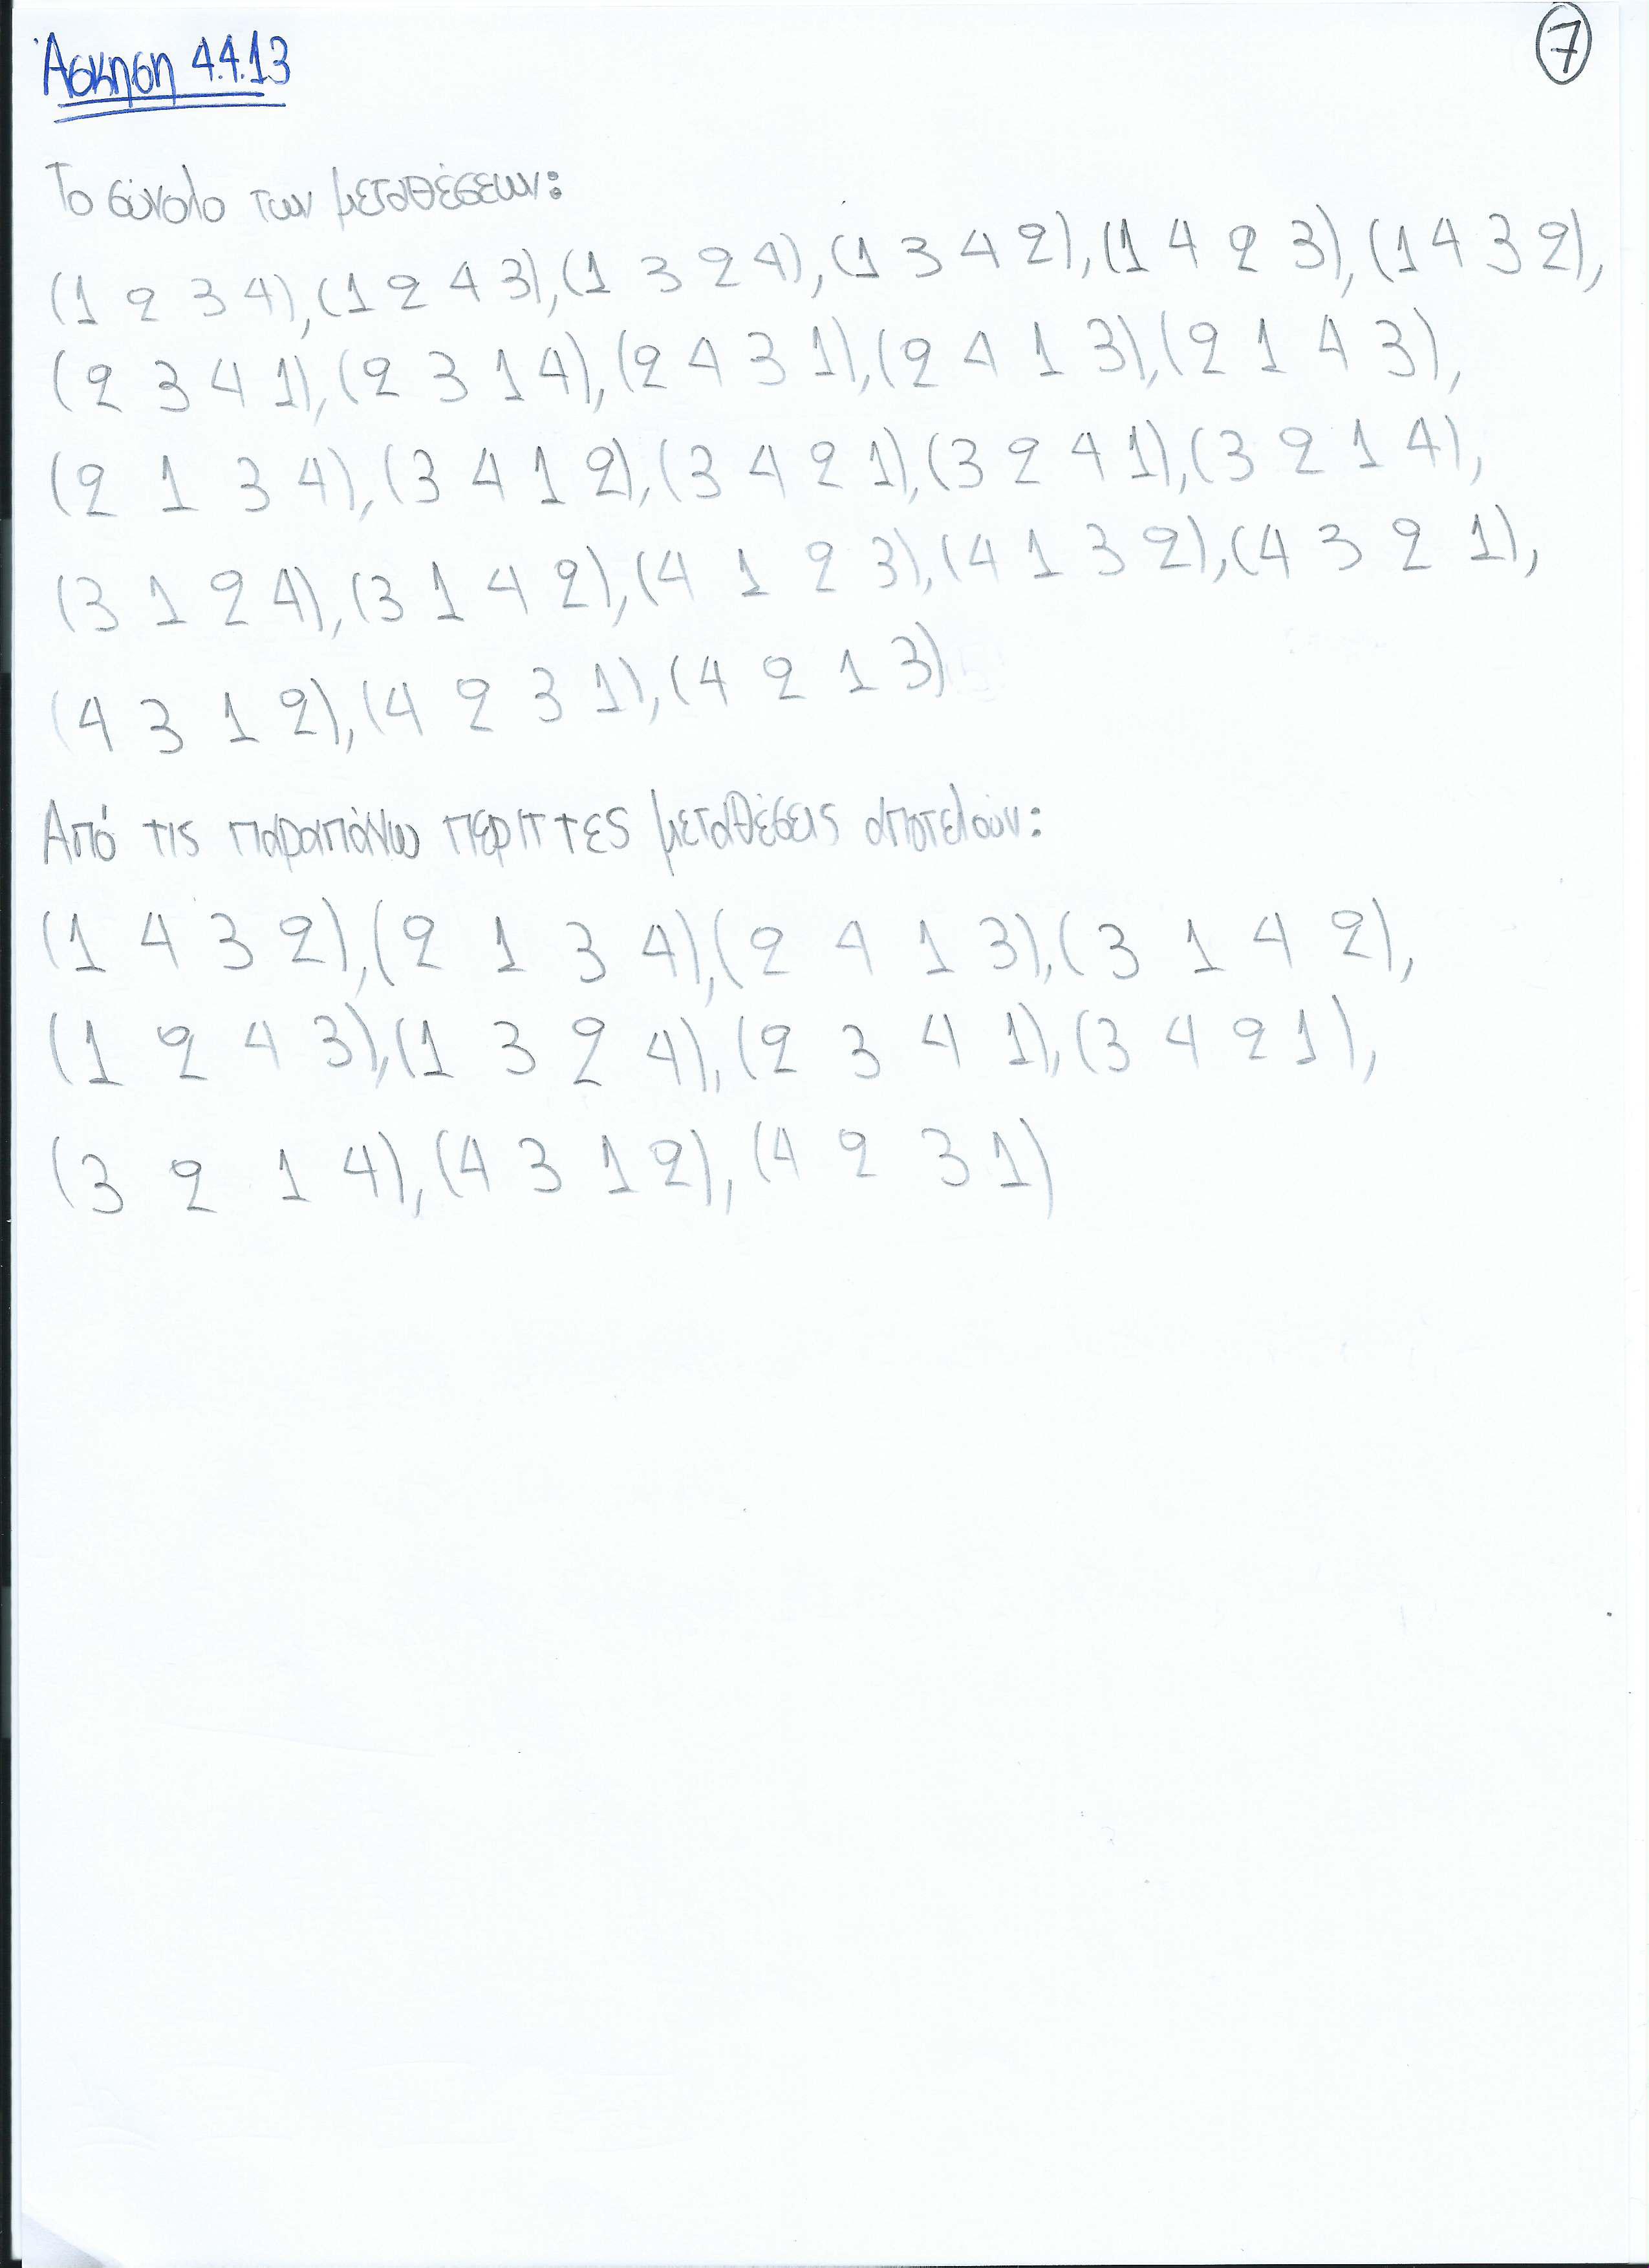 Άσκηση 4.4.13
7
Το σύνολο των μεταθέσεων:
(1 2 3 4), (1 2 4 3), (1 3 2 4), (1 3 4 2), (1 4 2 3), (1 4 3 2),
(2 3 4 1), (2 3 1 4), (2 4 3 1), (2 4 1 3), (2 1 4 3),
(2 1 3 4), (3 4 1 2), (3 4 2 1), (3 2 4 1), (3 2 1 4),
(3 1 2 4), (3 1 4 2), (4 1 2 3), (4 1 3 2), (4 3 2 1),
(4 3 1 2), (4 2 3 1), (4 2 1 3)
Από τις παραπάνω περιττές μεταθέσεις αποτελούν:
(1 4 3 2), (2 1 3 4), (2 4 1 3), (3 1 4 2),
(1 2 4 3), (1 3 2 4), (2 3 4 1), (3 4 2 1),
(3 2 1 4), (4 3 1 2), (4 2 3 1)